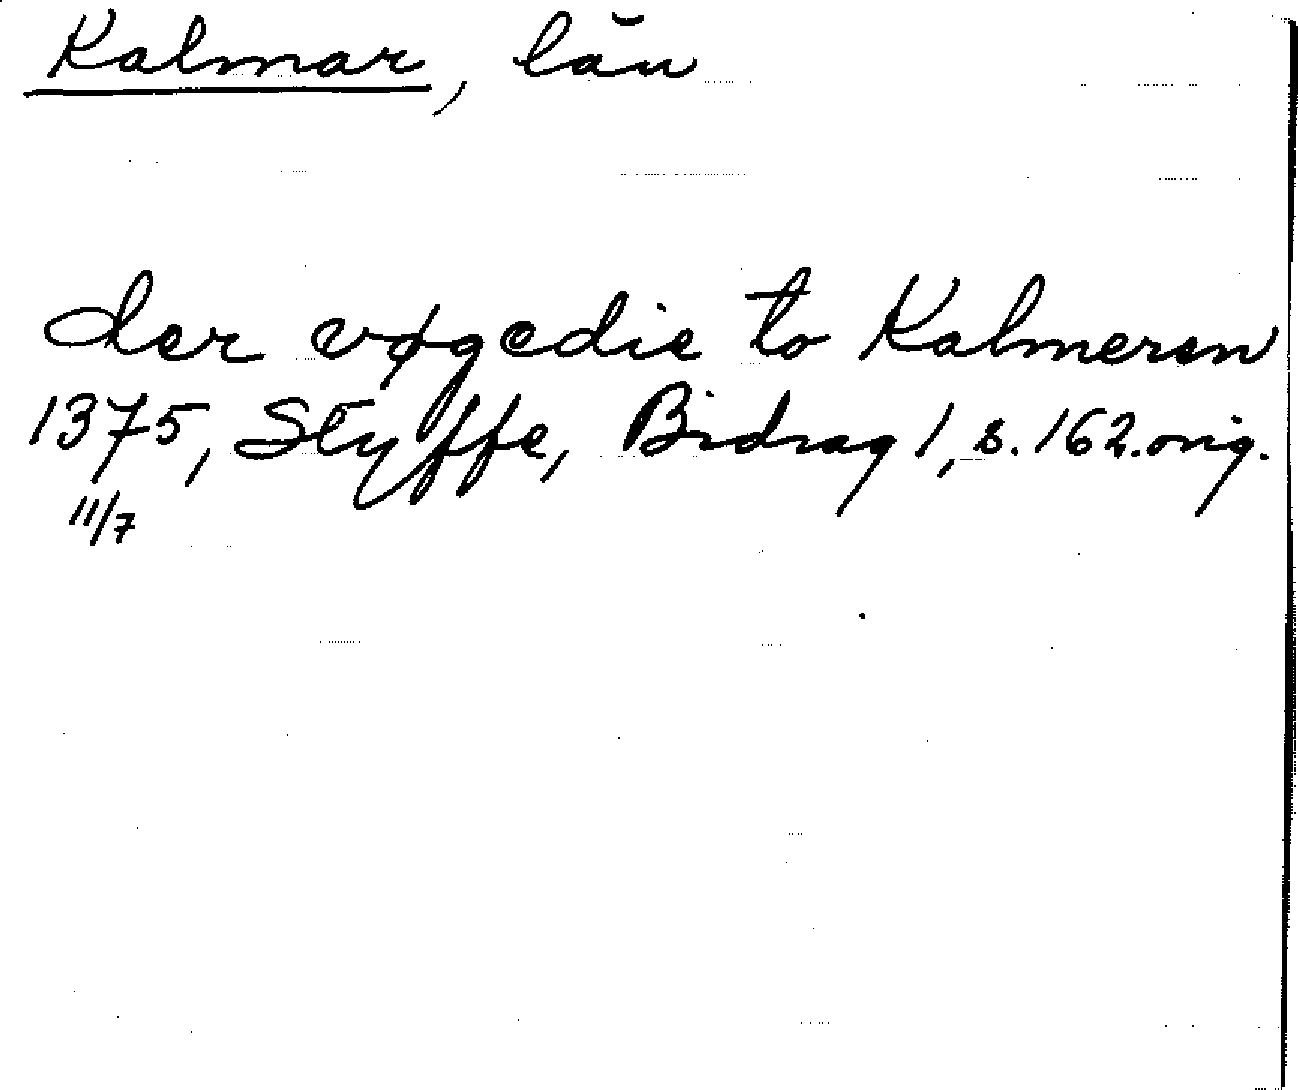 Kalmar, län
der vøgedie to Kalmeren
1375, Styffe, Bidrag 1, s. 162. orig.
11/7